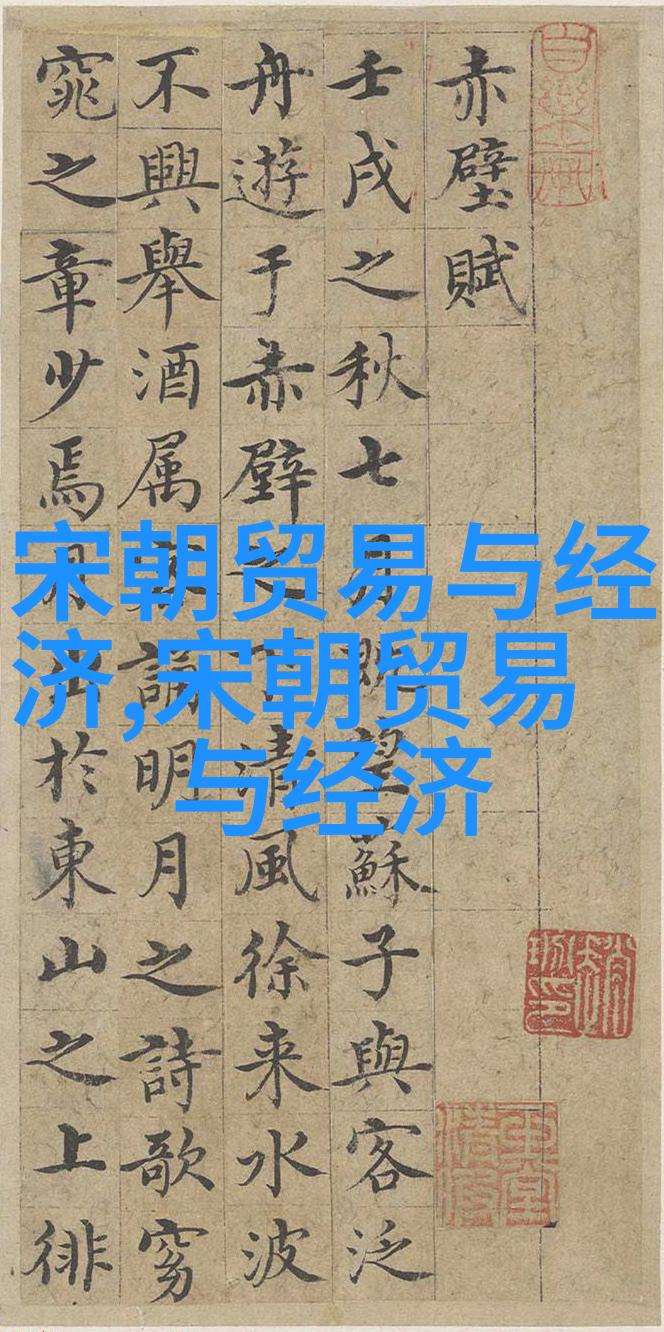 赤壁賦
壬戌之秋七月既望蘇子與客泛
舟遊于赤壁之下清風徐来水波
不興舉酒属客誦明月之詩歌窈
窕之章少焉月出於東山之上徘
宋朝贸易与经
济,宋朝贸易
与经济